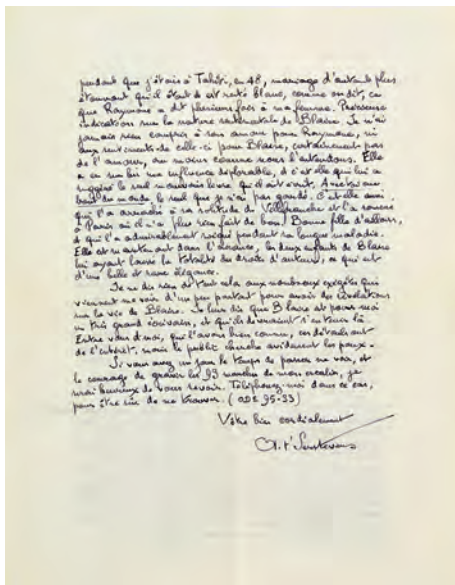 pendant que j'étais à Tahiti, en 48, mariage d'autant plus
étonnant qu'il était resté blanc, comme on dit, ce
que Raymone a dit plusieurs fois à ma femme. Précieuse
indication sur la nature sentimentale de Blaise. Je n'ai
jamais rien compris à son amour pour Raymone, ni
aux sentiments de celle-ci pour Blaise, certainement pas
de l'amour, au moins comme nous l'entendons. Elle
a eu sur lui une influence déplorable, et c'est elle qui lui a
suggéré le seul mauvais livre qu'il ait écrit, Emmène-moi au
bout du monde, le seul que je n'ai pas gardé. C'est elle aussi
qui l'a arraché à sa solitude de Villefranche et l'a ramené
à Paris où il n'a plus rien fait de bon. Bonne fille d'ailleurs,
et qui l'a admirablement soigné pendant sa longue maladie.
Elle est maintenant dans l'aisance, les deux enfants de Blaise
lui ayant laissé la totalité des droits d'auteur, ce qui est
d'une belle et rare élégance.
Je ne dis rien de tout cela aux nombreux exégètes qui
viennent me voir d'un peu partout pour avoir des révélations
sur la vie de Blaise. Je leur dis que Blaise est pour moi
un très grand écrivain, et qu'ils devraient s'en tenir là.
Entre vous et moi, qui l'avons bien connu, ces détails ont
de l'intérêt, mais le public cherche avidement les poux.
Si vous avez un jour le temps de passer me voir, et
le courage de gravir les 93 marches de mon escalier, je
serai heureux de vous revoir. Téléphonez-moi dans ce cas,
pour être sûr de me trouver. (ODE 95-33)
Votre bien cordialement
A. t'Serstevens